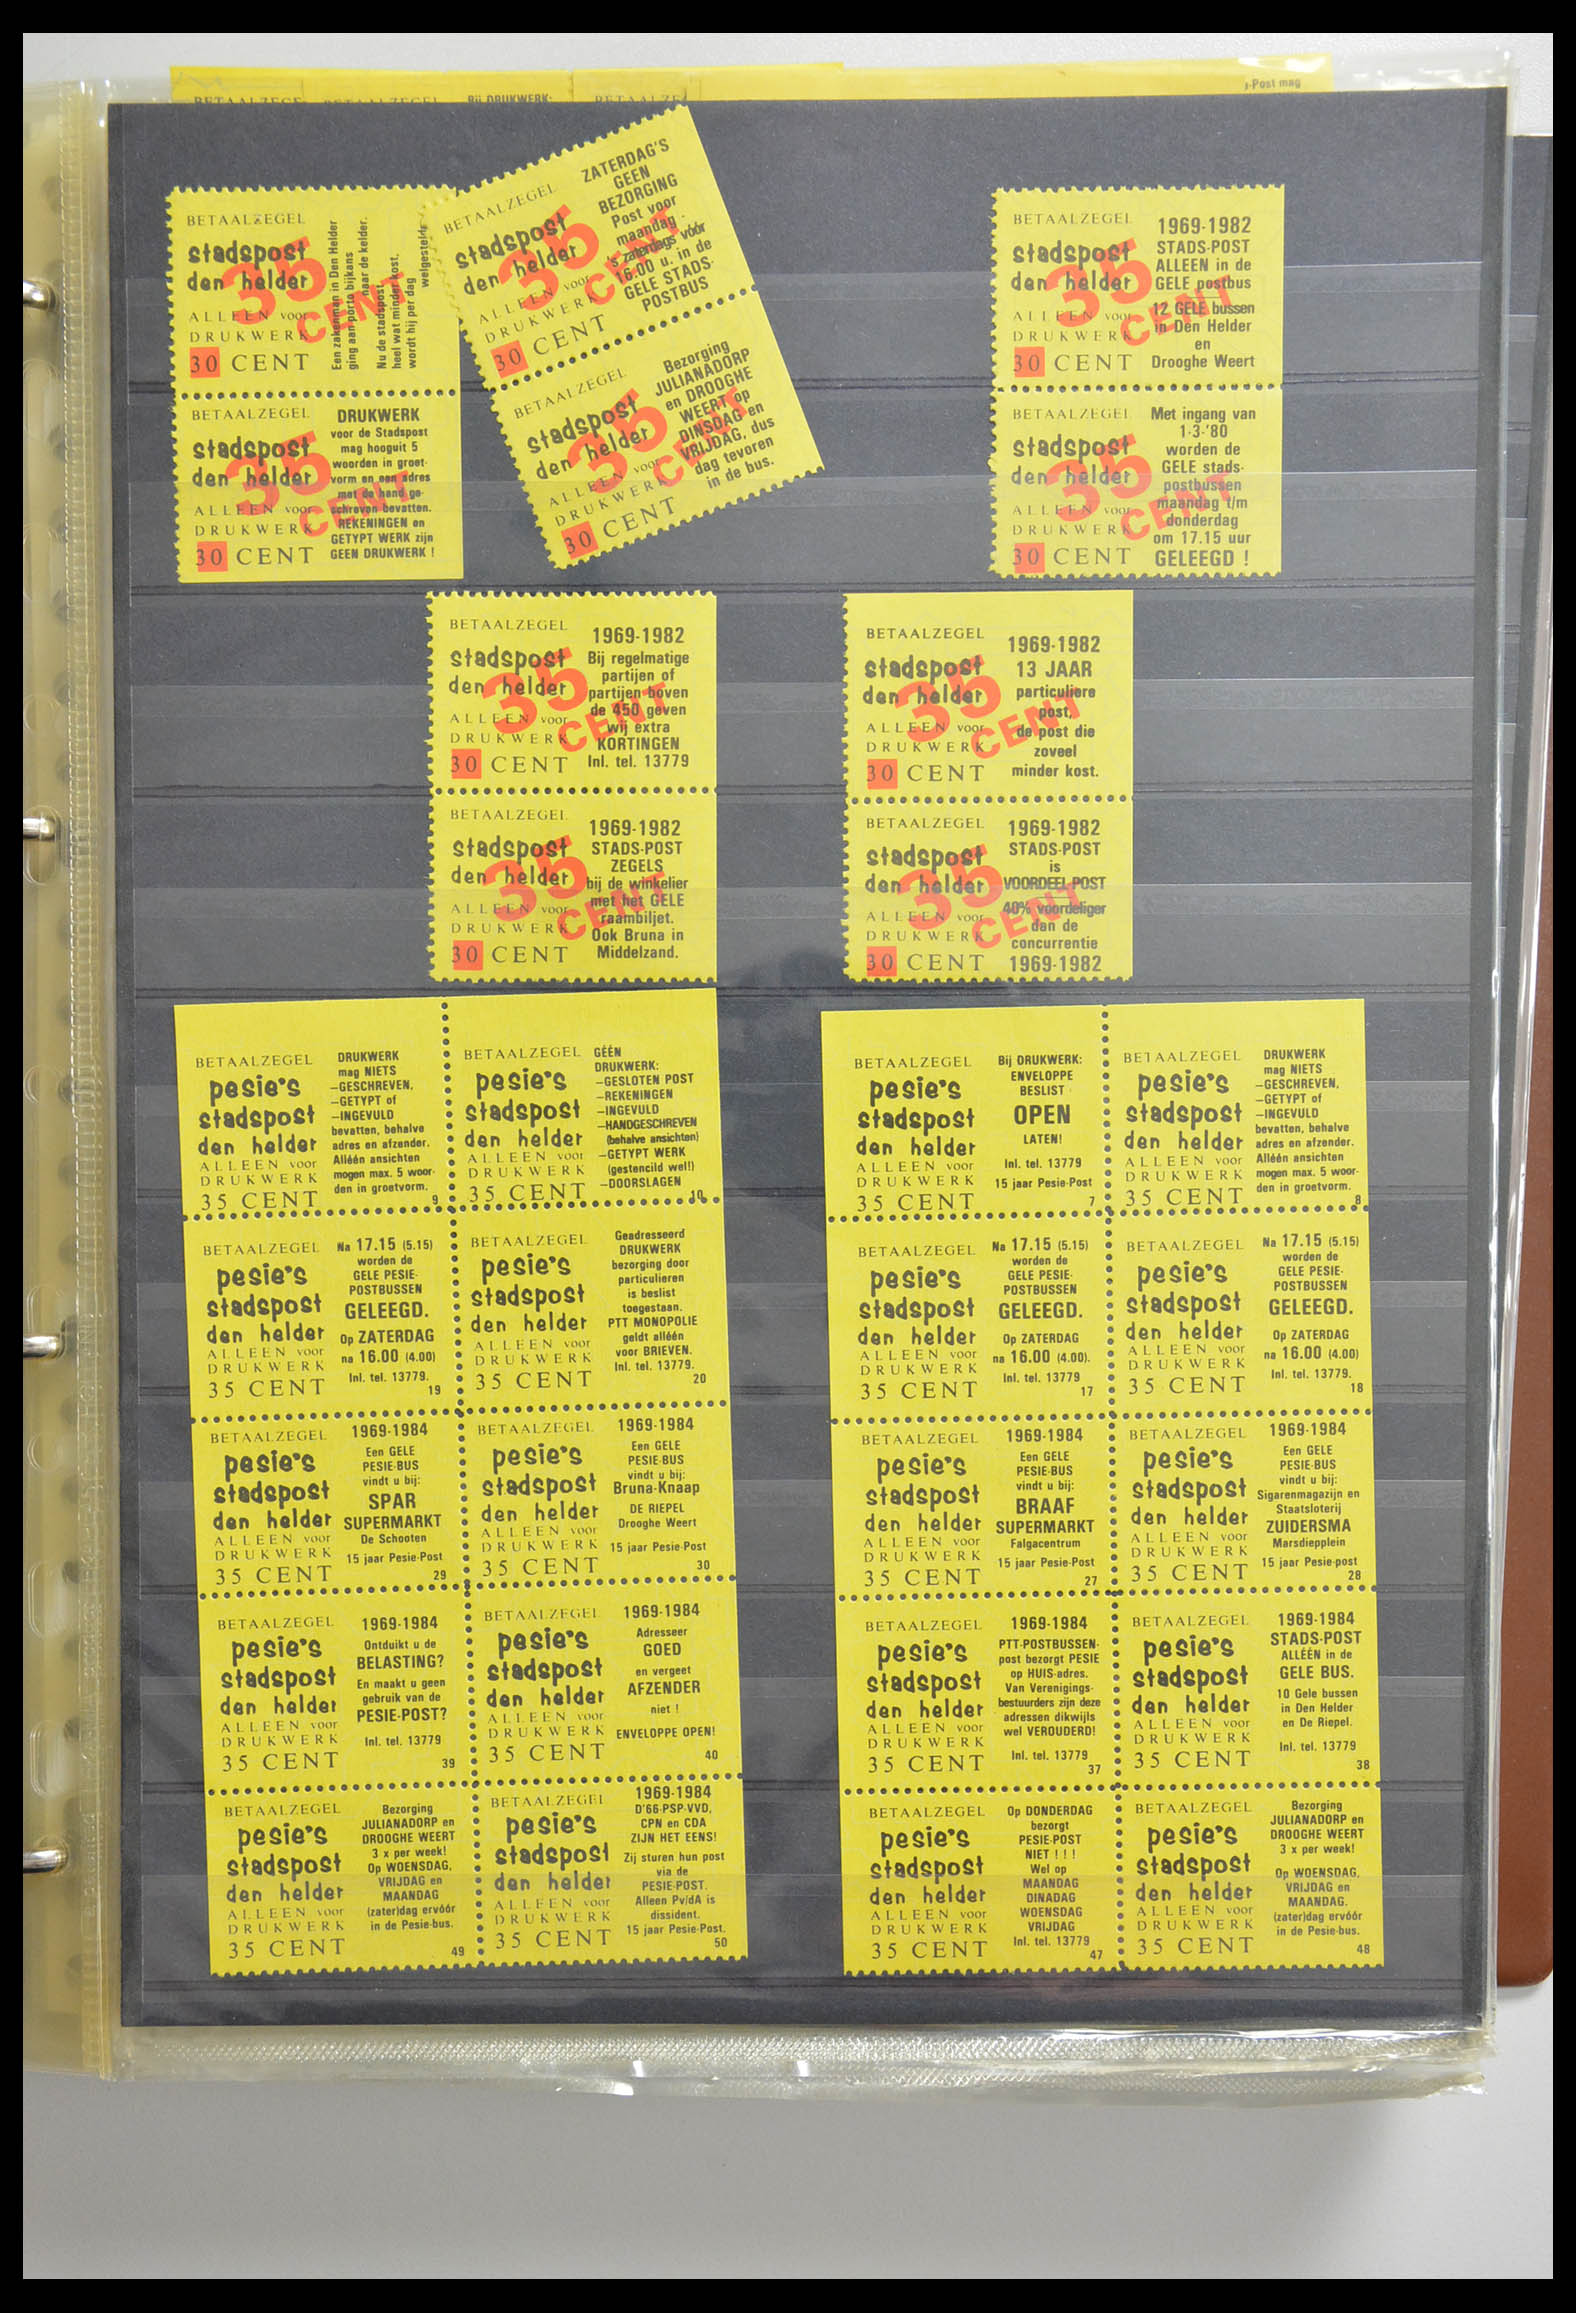 BETAALZEGE
BETAALZEGEL
Bij DRUKWERK:
BETAALZE
-Post mag
BETAALZEGEL
stadspost
den helder
ALLEEN voor
DRUKWERK
30 CENT
35
CENT
Een zakenman in Den Helder
ging aan porto bijkans
naar de kelder.
Nu de stadspost
heel wat minder kost,
wordt hij per dag
welgestelde
BETAALZEGEL
stadspost
den helder
ALLEEN voor
DRUKWERK
30 CENT
35
CENT
DRUKWERK
voor de Stadspost
mag hooguit 5
woorden in groet-
vorm en een adres
met de hand ge-
schreven bevatten.
REKENINGEN en
GETYPT WERK zijn
GEEN DRUKWERK !
BETAALZEGEL
stadspost
den helder
ALLEEN voor
DRUKWERK
30 CENT
35
CENT
ZATERDAG'S
GEEN
BEZORGING
Post voor
maandag
's zaterdags vóór
16.00 u. in de
GELE STADS-
POSTBUS
BETAALZEGEL
stadspost
den helder
ALLEEN voor
DRUKWERK
30 CENT
35
CENT
Bezorging
JULIANADORP
en DROOGHE
WEERT op
DINSDAG en
VRIJDAG, dus
dag tevoren
in de bus.
BETAALZEGEL
stadspost
den helder
ALLEEN voor
DRUKWERK
30 CENT
35
CENT
1969-1982
STADS-POST
ALLEEN in de
GELE postbus
12 GELE bussen
in Den Helder
en
Drooghe Weert
BETAALZEGEL
stadspost
den helder
ALLEEN voor
DRUKWERK
30 CENT
35
CENT
Met ingang van
1-3-'80
worden de
GELE stads-
postbussen
maandag t/m
donderdag
om 17.15 uur
GELEEGD !
BETAALZEGEL
stadspost
den helder
ALLEEN voor
DRUKWERK
30 CENT
35
CENT
1969-1982
Bij regelmatige
partijen of
partijen boven
de 450 geven
wij extra
KORTINGEN
Inl. tel. 13779
BETAALZEGEL
stadspost
den helder
ALLEEN voor
DRUKWERK
30 CENT
35
CENT
1969-1982
STADS-POST
ZEGELS
bij de winkelier
met het GELE
raambiljet.
Ook Bruna in
Middelzand.
BETAALZEGEL
stadspost
den helder
ALLEEN voor
DRUKWERK
30 CENT
35
CENT
1969-1982
13 JAAR
particuliere
post,
de post die
zoveel
minder kost.
BETAALZEGEL
stadspost
den helder
ALLEEN voor
DRUKWERK
30 CENT
35
CENT
1969-1982
STADS-POST
is
VOORDEEL-POST
40% voordeliger
dan de
concurrentie
1969-1982
BETAALZEGEL
pesie's
stadspost
den helder
ALLEEN voor
DRUKWERK
35 CENT
DRUKWERK
mag NIETS
—GESCHREVEN,
—GETYPT of
—INGEVULD
bevatten, behalve
adres en afzender.
Alléén ansichten
mogen max. 5 woor-
den in groetvorm.
9
BETAALZEGEL
pesie's
stadspost
den helder
ALLEEN voor
DRUKWERK
35 CENT
GÉÉN
DRUKWERK:
—GESLOTEN POST
—REKENINGEN
—INGEVULD
—HANDGESCHREVEN
(behalve ansichten)
—GETYPT WERK
(gestencild wel!)
—DOORSLAGEN
10
BETAALZEGEL
pesie's
stadspost
den helder
ALLEEN voor
DRUKWERK
35 CENT
Na 17.15 (5.15)
worden de
GELE PESIE-
POSTBUSSEN
GELEEGD.
Op ZATERDAG
na 16.00 (4.00)
Inl. tel. 13779.
19
BETAALZEGEL
pesie's
stadspost
den helder
ALLEEN voor
DRUKWERK
35 CENT
Geadresseerd
DRUKWERK
bezorging door
particulieren
is beslist
toegestaan.
PTT MONOPOLIE
geldt alléén
voor BRIEVEN.
Inl. tel. 13779.
20
BETAALZEGEL
pesie's
stadspost
den helder
ALLEEN voor
DRUKWERK
35 CENT
1969-1984
Een GELE
PESIE-BUS
vindt u bij:
SPAR
SUPERMARKT
De Schooten
15 jaar Pesie-Post
29
BETAALZEGEL
pesie's
stadspost
den helder
ALLEEN voor
DRUKWERK
35 CENT
1969-1984
Een GELE
PESIE-BUS
vindt u bij:
Bruna-Knaap
DE RIEPEL
Drooghe Weert
15 jaar Pesie-Post
30
BETAALZEGEL
pesie's
stadspost
den helder
ALLEEN voor
DRUKWERK
35 CENT
1969-1984
Ontduikt u de
BELASTING?
En maakt u geen
gebruik van de
PESIE-POST?
Inl. tel. 13779
39
BETAALZEGEL
pesie's
stadspost
den helder
ALLEEN voor
DRUKWERK
35 CENT
1969-1984
Adresseer
GOED
en vergeet
AFZENDER
niet !
ENVELOPPE OPEN!
40
BETAALZEGEL
pesie's
stadspost
den helder
ALLEEN voor
DRUKWERK
35 CENT
Bezorging
JULIANADORP en
DROOGHE WEERT
3 x per week!
Op WOENSDAG,
VRIJDAG en
MAANDAG
(zater)dag ervóór
in de Pesie-bus.
49
BETAALZEGEL
pesie's
stadspost
den helder
ALLEEN voor
DRUKWERK
35 CENT
1969-1984
D'66-PSP-VVD,
CPN en CDA
ZIJN HET EENS!
Zij sturen hun post
via de
PESIE-POST.
Alleen Pv/dA is
dissident.
15 jaar Pesie-Post.
50
BETAALZEGEL
pesie's
stadspost
den helder
ALLEEN voor
DRUKWERK
35 CENT
Bij DRUKWERK:
ENVELOPPE
BESLIST
OPEN
LATEN!
Inl. tel. 13779
15 jaar Pesie-Post
7
BETAALZEGEL
pesie's
stadspost
den helder
ALLEEN voor
DRUKWERK
35 CENT
DRUKWERK
mag NIETS
—GESCHREVEN,
—GETYPT of
—INGEVULD
bevatten, behalve
adres en afzender.
Alléén ansichten
mogen max. 5 woor-
den in groetvorm.
8
BETAALZEGEL
pesie's
stadspost
den helder
ALLEEN voor
DRUKWERK
35 CENT
Na 17.15 (5.15)
worden de
GELE PESIE-
POSTBUSSEN
GELEEGD.
Op ZATERDAG
na 16.00 (4.00).
Inl. tel. 13779
17
BETAALZEGEL
pesie's
stadspost
den helder
ALLEEN voor
DRUKWERK
35 CENT
Na 17.15 (5.15)
worden de
GELE PESIE-
POSTBUSSEN
GELEEGD.
Op ZATERDAG
na 16.00 (4.00)
Inl. tel. 13779.
18
BETAALZEGEL
pesie's
stadspost
den helder
ALLEEN voor
DRUKWERK
35 CENT
1969-1984
Een GELE
PESIE-BUS
vindt u bij:
BRAAF
SUPERMARKT
Falgacentrum
15 jaar Pesie-Post
27
BETAALZEGEL
pesie's
stadspost
den helder
ALLEEN voor
DRUKWERK
35 CENT
1969-1984
Een GELE
PESIE-BUS
vindt u bij:
Sigarenmagazijn en
Staatsloterij
ZUIDERSMA
Marsdiepplein
15 jaar Pesie-post
28
BETAALZEGEL
pesie's
stadspost
den helder
ALLEEN voor
DRUKWERK
35 CENT
1969-1984
PTT-POSTBUSSEN-
post bezorgt PESIE
op HUIS-adres.
Van Verenigings-
bestuurders zijn deze
adressen dikwijls
wel VEROUDERD!
Inl. tel. 13779
37
BETAALZEGEL
pesie's
stadspost
den helder
ALLEEN voor
DRUKWERK
35 CENT
1969-1984
STADS-POST
ALLÉÉN in de
GELE BUS.
10 Gele bussen
in Den Helder
en De Riepel.
Inl. tel. 13779
38
BETAALZEGEL
pesie's
stadspost
den helder
ALLEEN voor
DRUKWERK
35 CENT
Op DONDERDAG
bezorgt
PESIE-POST
NIET ! ! !
Wel op
MAANDAG
DINADAG
WOENSDAG
VRIJDAG
Inl. tel. 13779
47
BETAALZEGEL
pesie's
stadspost
den helder
ALLEEN voor
DRUKWERK
35 CENT
Bezorging
JULIANADORP en
DROOGHE WEERT
3 x per week!
Op WOENSDAG,
VRIJDAG en
MAANDAG.
(zater)dag ervóór
in de Pesie-bus.
48